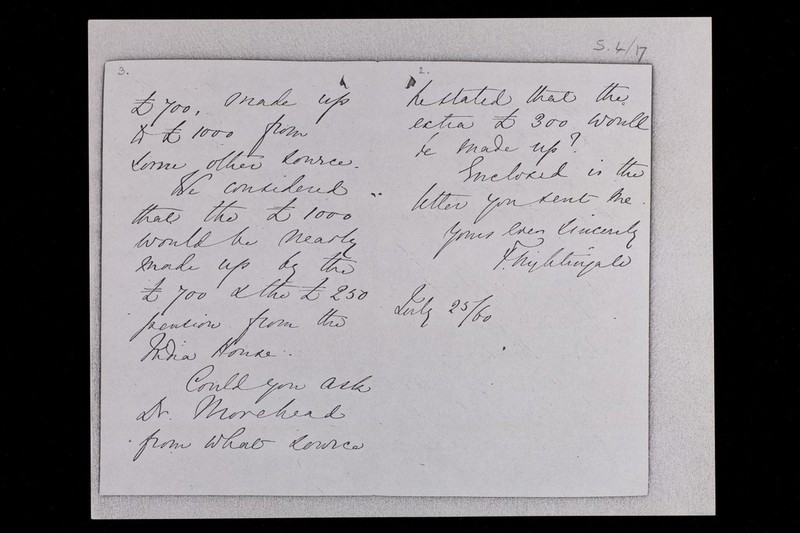 S.4/17
3.
£700, made up
to £1000 from
some other source.
We considered
that the £1000
would be nearly
made up by the
£700 & the £250
pension from the
India House.
Could you ask
Dr. Morehead
from what source
2.
he stated that the
extra £300 would
be made up?
Enclosed is the
letter you sent me.
Yours ever sincerely
F. Nightingale
July 25/60